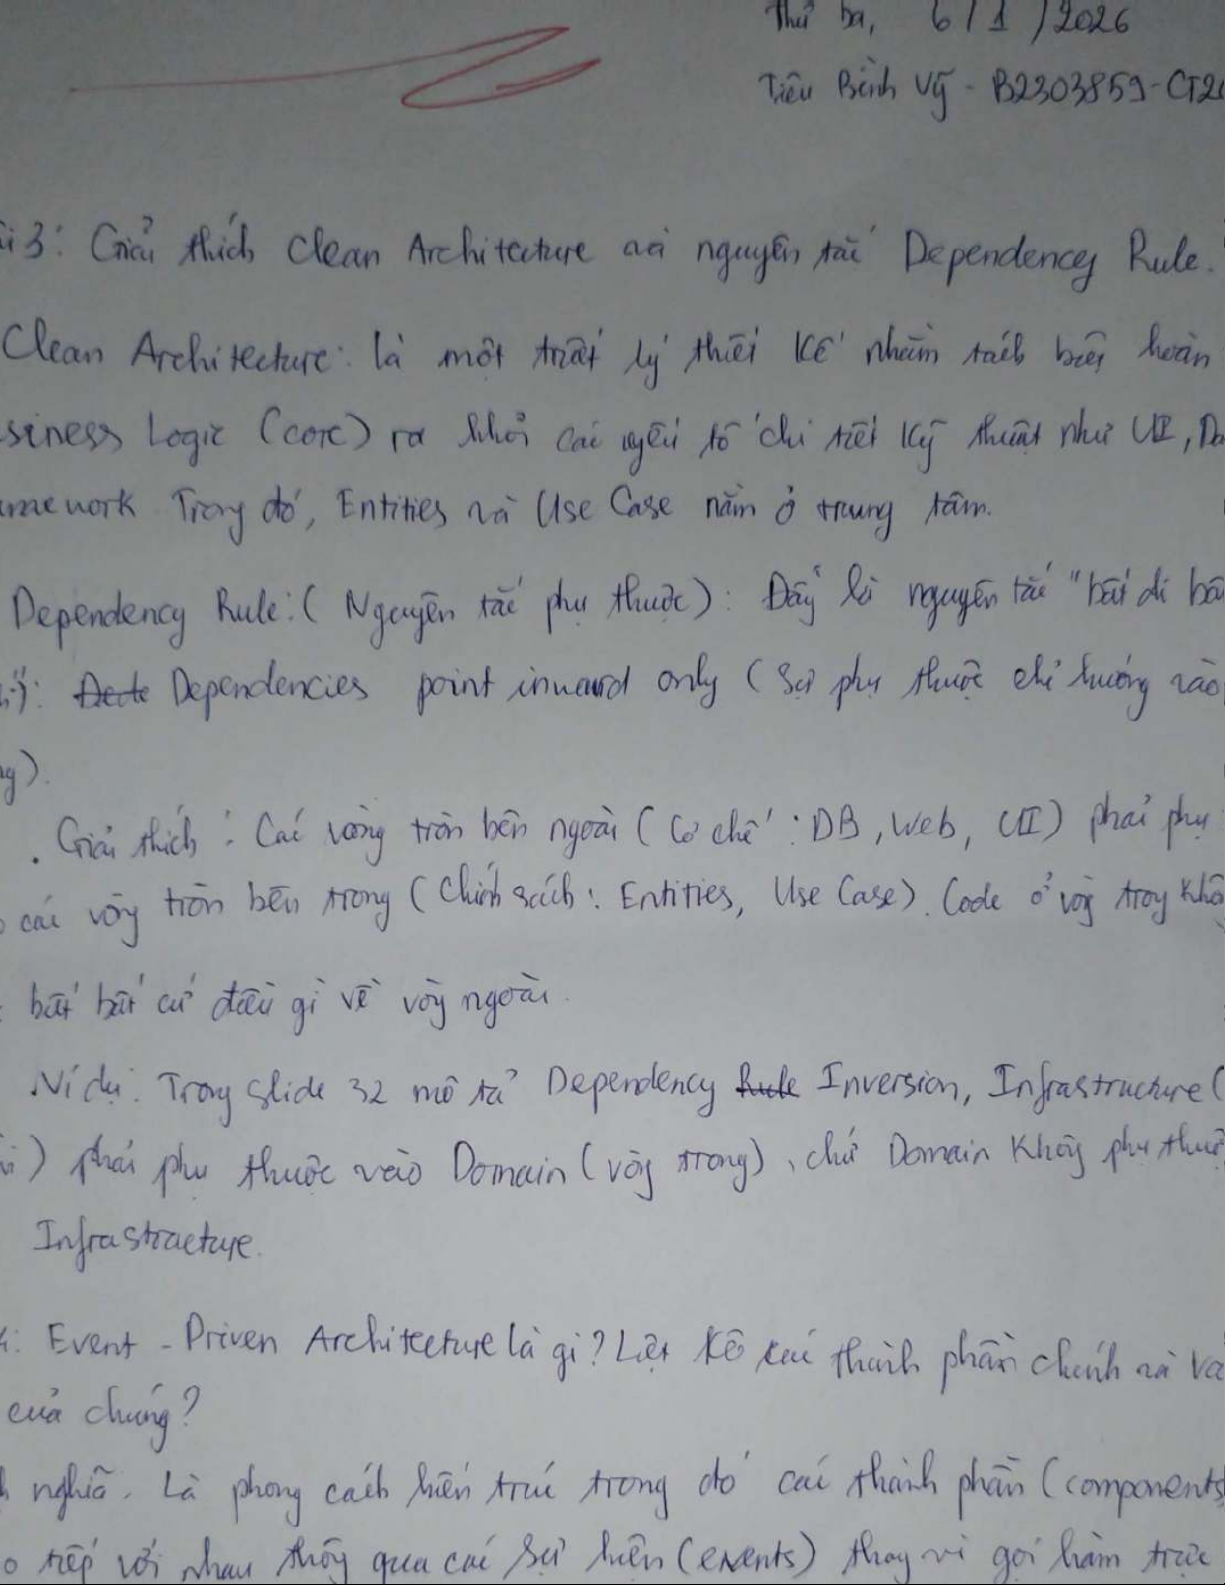 Thứ ba, 6/1/2026
Tiêu Bình Vỹ - B2303859 - CT2
i 3: Giải thích Clean Architecture và nguyên tắc Dependency Rule.
Clean Architecture: là một triết lý thiết kế nhằm tách biệt hoàn
siness Logic (core) ra khỏi các yếu tố chi tiết kỹ thuật như UI, Da
mework. Trong đó, Entities và Use Case nằm ở trung tâm.
Dependency Rule: (Nguyên tắc phụ thuộc): Đây là nguyên tắc "bất di bấ
": Dependencies point inward only (Sự phụ thuộc chỉ hướng vào
ng).
. Giải thích: Các vòng tròn bên ngoài (Cơ chế: DB, Web, UI) phải phụ
các vòng tròn bên trong (Chính sách: Entities, Use Case). Code ở vòng trong khô
biết bất cứ điều gì về vòng ngoài.
. Ví dụ: Trong slide 32 mô tả Dependency Inversion, Infrastructure (
) phải phụ thuộc vào Domain (vòng trong), chứ Domain không phụ thuộ
Infrastructure.
4: Event - Driven Architecture là gì? Liệt kê các thành phần chính và va
của chúng?
h nghĩa. Là phong cách kiến trúc trong đó các thành phần (components
o tiếp với nhau thông qua các sự kiện (events) thay vì gọi hàm trực